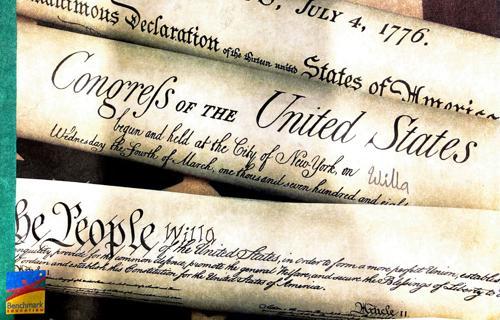 JULY 4, 1776.
Declaration of the thirteen united States of America
Congreſs OF THE United States
begun and held at the City of New-York, on
Wednesday the fourth of March, one thousand seven hundred and
Willa
he People Willa
of the United States, in order to form a more perfect Union, establish
provide for the common defence, promote the general Welfare, and secure the Blessings of Liberty to
and establish this Constitution for the United States of America.
Article I.
Benchmark
EDUCATION